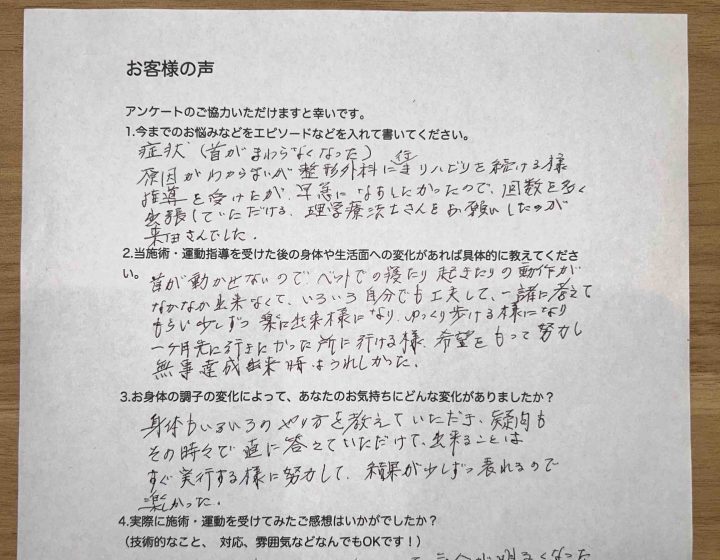 お客様の声
アンケートのご協力いただけますと幸いです。
1.今までのお悩みなどをエピソードなどを入れて書いてください。
症状(首がまわらなくなった)
原因がわからないが整形外科に行きリハビリを続ける様
指導を受けたが、早急になおしたかったので、回数を多く
出張していただける、理学療法士さんをお願いしたのが
来田さんでした。
2.当施術・運動指導を受けた後の身体や生活面への変化があれば具体的に教えてくださ
い。
首が動かせないのでベットでの寝たり起きたりの動作が
なかなか出来なくて、いろいろ自分でも工夫して、一諸に考えて
もらい少しずつ楽に出来様になり、ゆっくり歩ける様になり
一ヶ月先に行きたかった所に行ける様、希望をもって努力し
無事達成出来時はうれしかった。
3.お身体の調子の変化によって、あなたのお気持ちにどんな変化がありましたか？
身体もいろいろのやり方を教えていただき、疑問も
その時々で直に答えていただけて、出来ることは
すぐ実行する様に努力して、積果が少しずつ表れるので
楽しかった。
4.実際に施術・運動を受けてみたご感想はいかがでしたか？
(技術的なこと、 対応、雰囲気などなんでもOKです！)